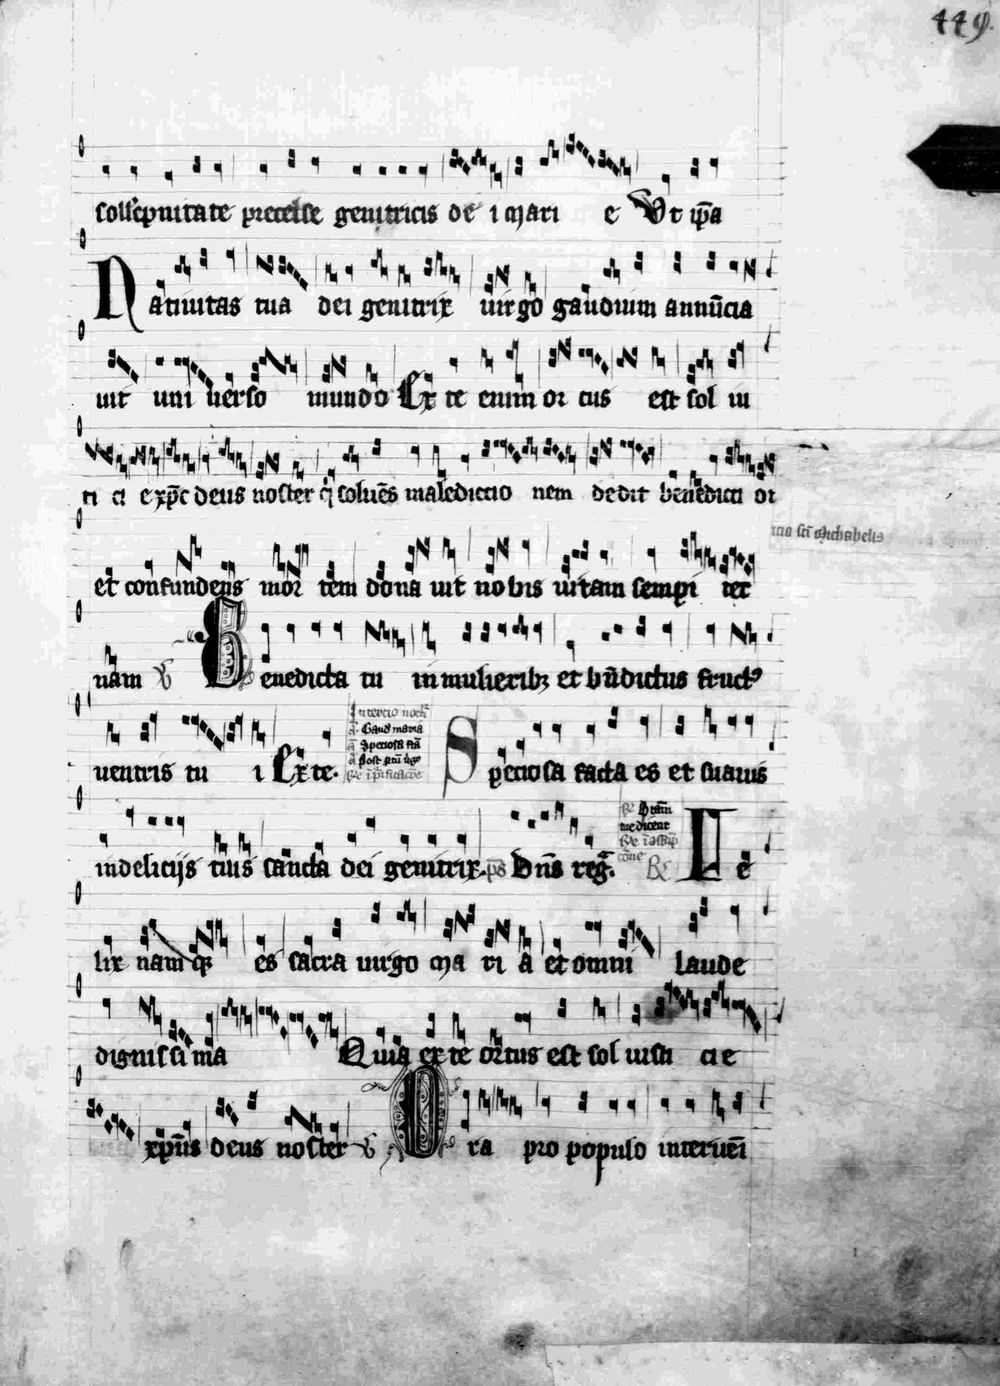 449.
sollēpnitate precelse genitricis de i mari e Ut ip̄a
Natiuitas tua dei genitrix uirgo gaudium annūcia
uit uni uerso mundo Ex te enim or tus est sol iu
ti ci e xp̄c deus noster q̄ soluēs maledictio nem dedit benedicti oī
et confundens mor tem dona uit nobis uitam sempi ter
nam
Benedicta tu in mulierib; et bn̄dictus fruct9
uentris tu i Ex te.
In tercio noct̄
ā Gaud maria
ā Speciosa fcā
ā Post ptū ũgo
Speciosa facta es et suauis
in delicijs tuis sancta dei genitrix. ps Dn̄s reḡ.
Fe
lix namq3 es sacra uirgo ma ri a et omni laude
dignissi ma Quia ex te ortus est sol iusti ci e
xp̄us deus noster
Ora pro populo interuēi
sc̄i Michahelis